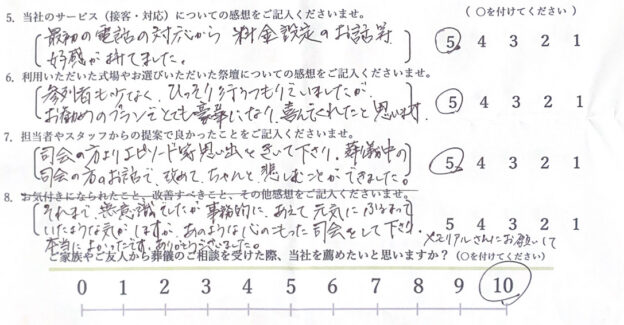 5. 当社のサービス(接客・対応)についての感想をご記入くださいませ。 (○を付けてください)
最初の電話の対応から 料金設定のお話等 5 4 3 2 1
好感が持てました。
6. 利用いただいた式場やお選びいただいた祭壇についての感想をご記入くださいませ。
参列者も少なく、ひっそり行うつもりでいましたが、 5 4 3 2 1
お勧めのプランでとても豪華になり、喜んでくれたと思います。
7. 担当者やスタッフからの提案で良かったことをご記入くださいませ。
司会の方よりエピソード家思い出をきいて下さり、葬儀中の 5 4 3 2 1
司会の方のお話で、改めて、ちゃんと悲しむことができました。
8. お気付きになられたこと、改善すべきこと、その他感想をご記入くださいませ。
それまで、無意識でしたが事務的に、あえて元気にふるまって 5 4 3 2 1
いたような気がしますが、あのような心のこもった司会をして下さり、メモリアルさんにお願いして
本当によかったです。ありがとうございました。
ご家族やご友人から葬儀のご相談を受けた際、当社を薦めたいと思いますか?(○を付けてください)
0 1 2 3 4 5 6 7 8 9 10